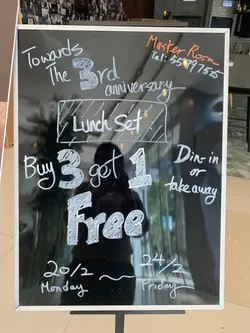 Towards
The 3rd
anniversary
Master Room
Lunch Set
Buy 3 get 1
Free
Dine-in
or
take away
20/2 ~ 24/2
Monday Friday